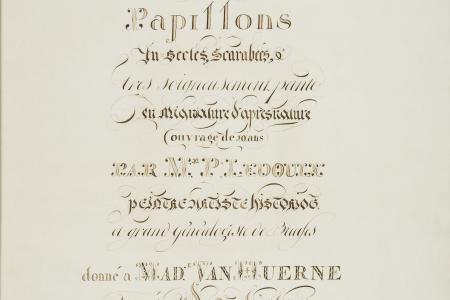 Papillons
Insectes, Scarabées, &
très soigneusement peints
en Miniature d'après nature
Ouvrage de 20 ans
PAR Mr. P. LEDOULX
PEINTRE ARTISTE HISTORIOG.
et grand Généalogiste de Bruges
donné a MAD. VAN HUERNE